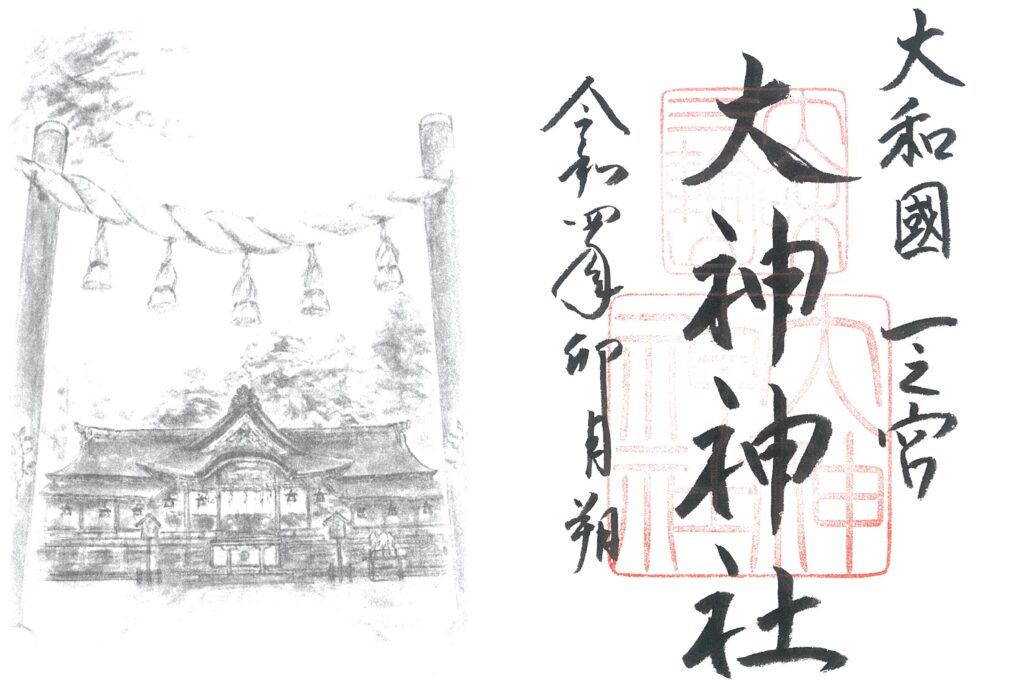 大和國 一之宮
大神神社
令和四年卯月朔
大神神社